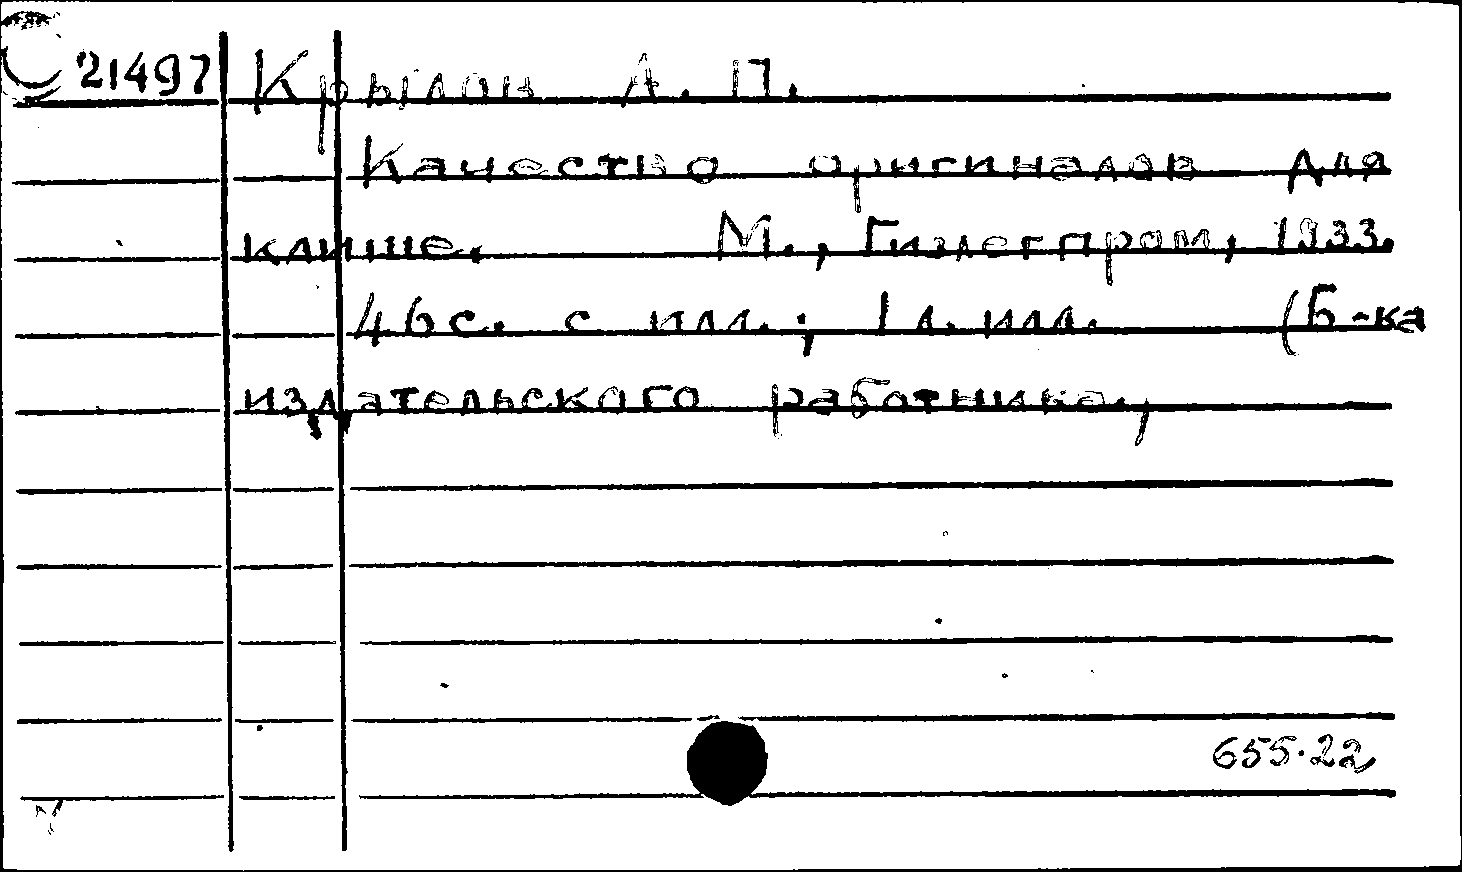 21497 Крылов А. П.
Качество оригиналов для
клише. М., Гизлегпром, 1933.
46с. с илл.; 1л. илл. (Б-ка
издательского работника.,
655.22